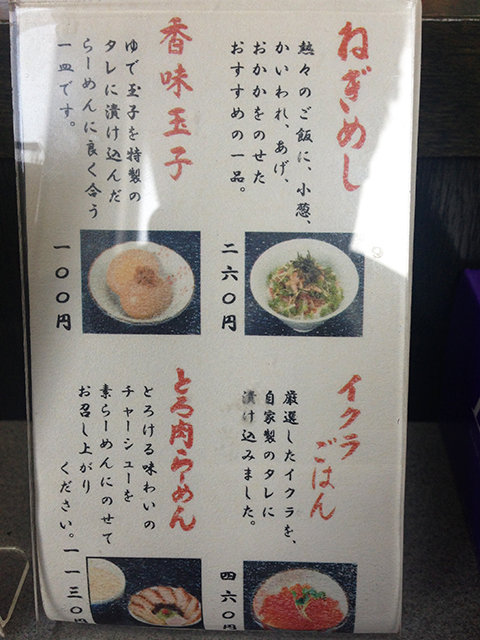 ねぎめし
熱々のご飯に、小葱、
かいわれ、あげ、
おかかをのせた
おすすめの一品。
二六〇円
香味玉子
ゆで玉子を特製の
タレに漬け込んだ
らーめんに良く合う
一皿です。
一〇〇円
イクラ
ごはん
厳選したイクラを、
自家製のタレに
漬け込みました。
四六〇円
とろ肉らーめん
とろける味わいの
チャーシューを
素らーめんにのせて
お召し上がり
ください。
一一三〇円